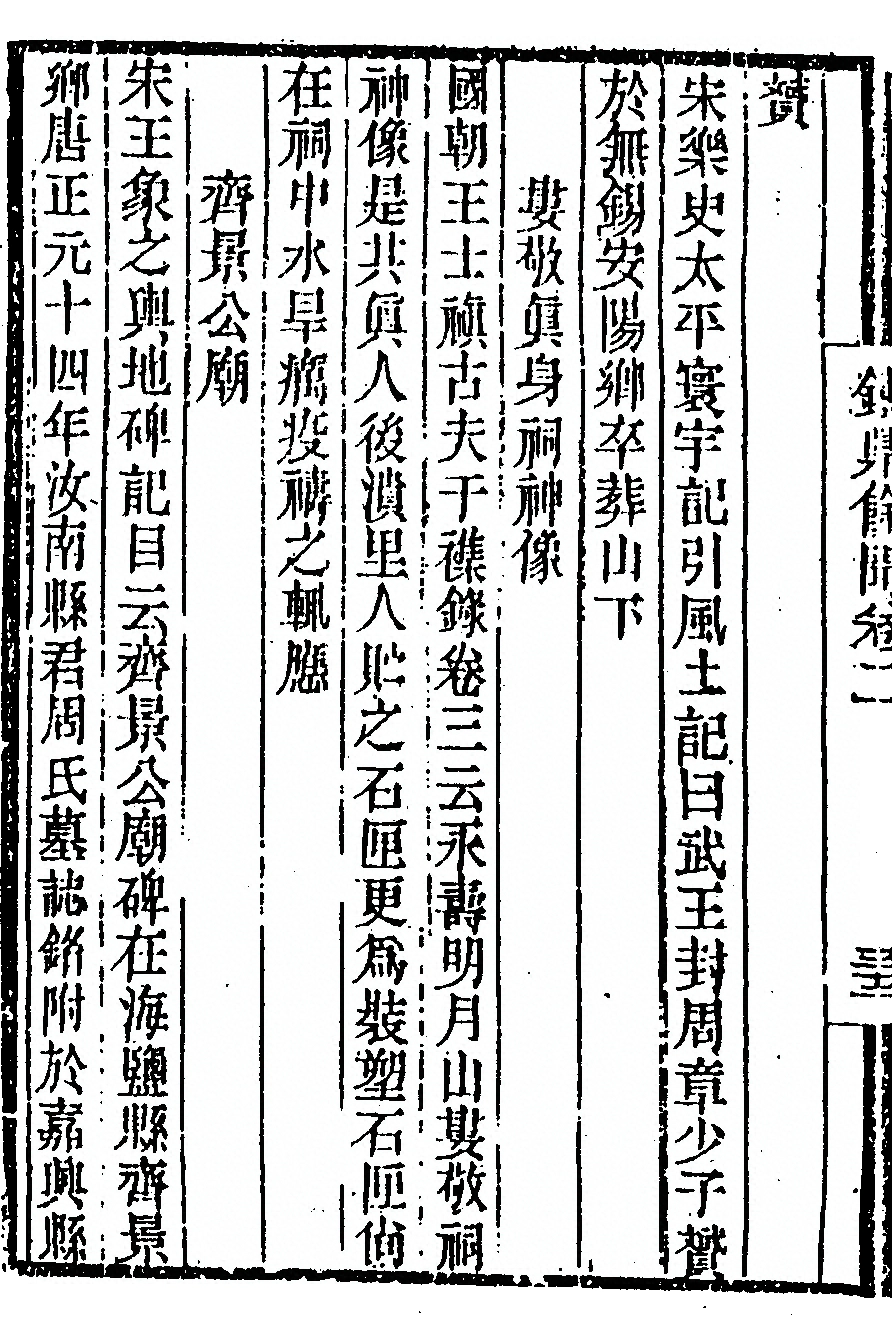 鑄鼎餘聞卷二
贇
宋樂史太平寰宇記引風土記曰武王封周章少子贇
於無錫安陽鄉卒葬山下
婁敬眞身祠神像
國朝王士禛古夫于襍錄卷三云永壽明月山婁敬祠
神像是共眞人後潰里人貯之石匣更爲裝塑石匣尙
在祠中水旱癘疫禱之輒應
齊景公廟
宋王象之輿地碑記目云齊景公廟碑在海鹽縣齊景
鄉唐正元十四年汝南縣君周氏墓誌銘附於嘉興縣